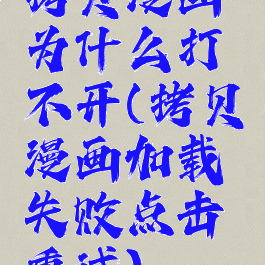 拷贝漫画
为什么打
不开(拷贝
漫画加载
失败点击
重试)